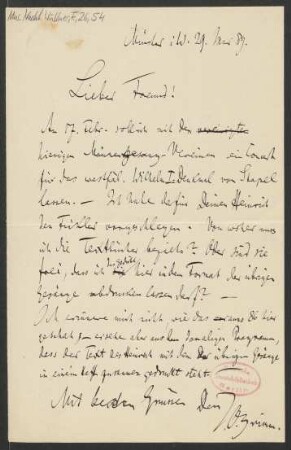 Mus. Nachl. Wüllner, F, 26, 54
Münster i/W. 29. 89.
Lieber Freund!
Am 17. Febr. sollen mit den vereinigten
hiesigen Männergesang-Vereinen ein Concert
für das westfäl. Wilhelm Denkmal vom Stapel
lassen. — Ich habe dafür Deinen Heinrich
den Finkler vorgeschlagen. — Von woher muss
ich die Textbücher beziehen? Oder sind sie
frei, dass ich hier in dem Format der übrigen
Gesänge nachdrucken lassen darf? —
Ich erinnere mich nicht wie das hier
geschah, ersehe aber aus dem damaligen Programm,
dass der Text des Heinrich mit den übrigen Gesängen
in einem Heft zusammen gedruckt steht. —
Mit besten Grüssen Dein
Grimm.